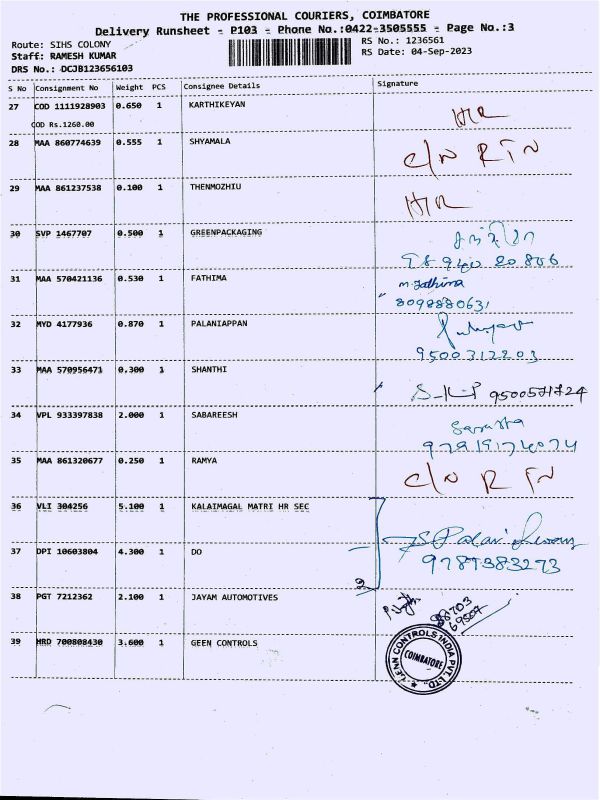 THE PROFESSIONAL COURIERS, COIMBATORE
Delivery Runsheet - P103 - Phone No.:0422-3505555 - Page No.:3
Route: SIHS COLONY RS No.: 1236561
Staff: RAMESH KUMAR RS Date: 04-Sep-2023
DRS No.: DCJB123656103
S No Consignment No Weight PCS Consignee Details Signature
27 COD 1111928903 0.650 1 KARTHIKEYAN
COD Rs.1260.00
28 MAA 860774639 0.555 1 SHYAMALA C/N RTN
29 MAA 861237538 0.100 1 THENMOZHIU
30 SVP 1467707 0.500 1 GREENPACKAGING
31 MAA 570421136 0.530 1 FATHIMA M. Fathima
8098880631
32 MYD 4177936 0.870 1 PALANIAPPAN
9500312203
33 MAA 570956471 0.300 1 SHANTHI 9500571724
34 VPL 933397838 2.000 1 SABAREESH
97919174074
35 MAA 861320677 0.250 1 RAMYA C/N RTN
36 VLI 304256 5.100 1 KALAIMAGAL MATRI HR SEC
37 DPI 10603804 4.300 1 DO
9787383273
38 PGT 7212362 2.100 1 JAYAM AUTOMOTIVES
39 HRD 700808430 3.600 1 GEEN CONTROLS
CONTROLS INDIA PVT. LTD.
COIMBATORE